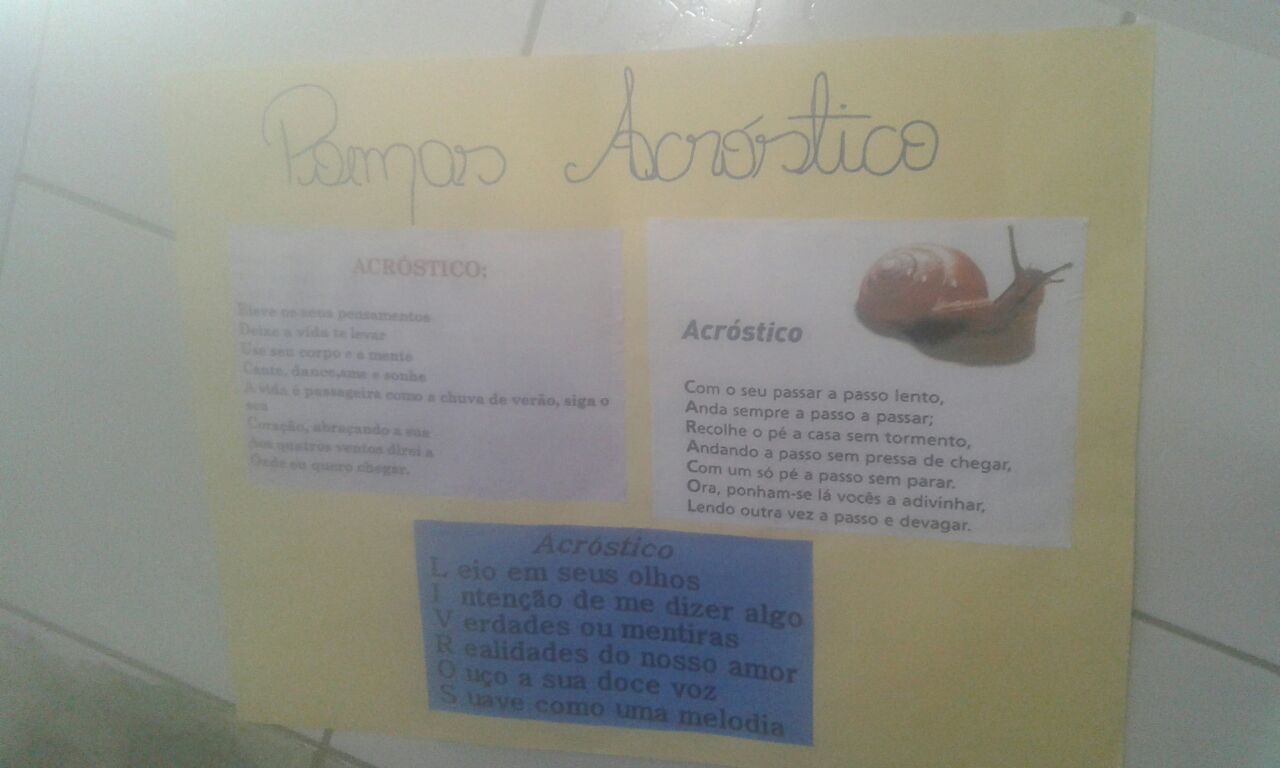 Poemas Acróstico
ACRÓSTICO:
Eleve os seus pensamentos
Deixe a vida te levar
Use seu corpo e a mente
Cante, dance,ame e sonhe
A vida é passageira como a chuva de verão, siga o
seu
Coração, abraçando a sua
Aos quatros ventos direi a
Onde eu quero chegar.
Acróstico
Com o seu passar a passo lento,
Anda sempre a passo a passar;
Recolhe o pé a casa sem tormento,
Andando a passo sem pressa de chegar,
Com um só pé a passo sem parar.
Ora, ponham-se lá vocês a adivinhar,
Lendo outra vez a passo e devagar.
Acróstico
L eio em seus olhos
I ntenção de me dizer algo
V erdades ou mentiras
R ealidades do nosso amor
O uço a sua doce voz
S uave como uma melodia